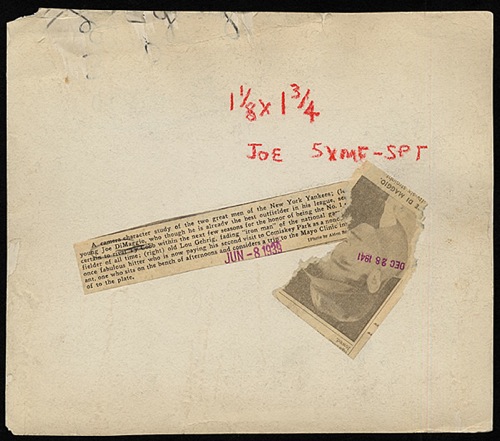 1 1/8 x 1 3/4
JOE 5XME-SPT
A camera character study of the two great men of the New York Yankees; (le
young Joe DiMaggio, who though he is already the best outfielder in his league, see
certain to rival any man within the next few seasons for the honor of being the No. 1
fielder of all time; (right) old Lou Gehrig, fading "iron man" of the national gam
once fabulous hitter who is now paying his second visit to Comiskey Park as a nonc
ant; one who sits on the bench of afternoons and considers a trip to the Mayo Clinic in
of to the plate.
JUN - 8 1939
DI MAGGIO.
DEC 26 1941